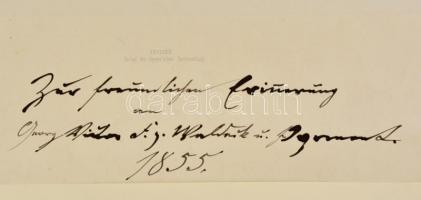 Zur freundlichen Erinnerung
an
Georg Victor F. z. Waldeck u. Pyrmont.
1855.
darabanth